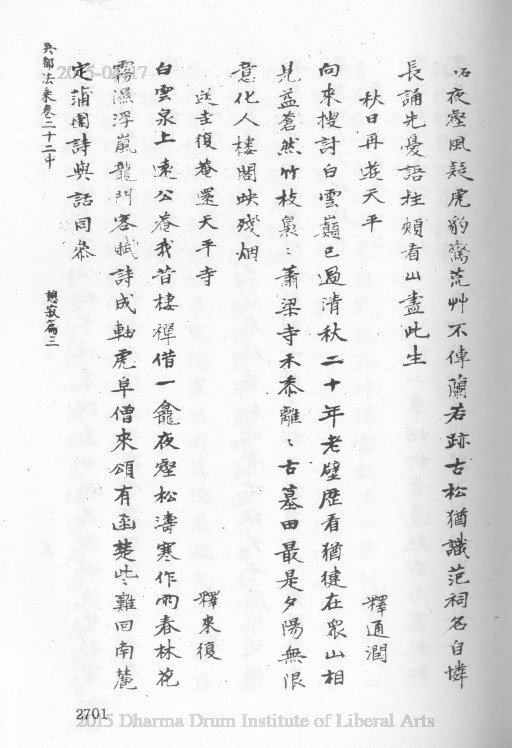 石夜壑風疑虎豹驚荒艸不傳蘭若跡古松猶識范祠名自憐
長誦先憂語拄頰看山盡此生
秋日再遊天平
釋通潤
向來搜討白雲巔已過清秋二十年老壁歷看猶健在眾山相
見益蒼然竹枝裊〻蕭梁寺禾黍離〻古墓田最是夕陽無限
意化人樓閣映殘烟
送主復菴還天平寺
釋來復
白雲泉上遠公菴我昔棲禪借一龕夜壑松濤寒作雨春林花
霧濕浮嵐龍門客賦詩成軸虎阜僧來頌有函楚些難回南麓
定蒲團詩與話同參
吳都法乘卷二十二中
憩寂篇三
2701
2015-0 17
2015 Dharma Drum Institute of Liberal Arts